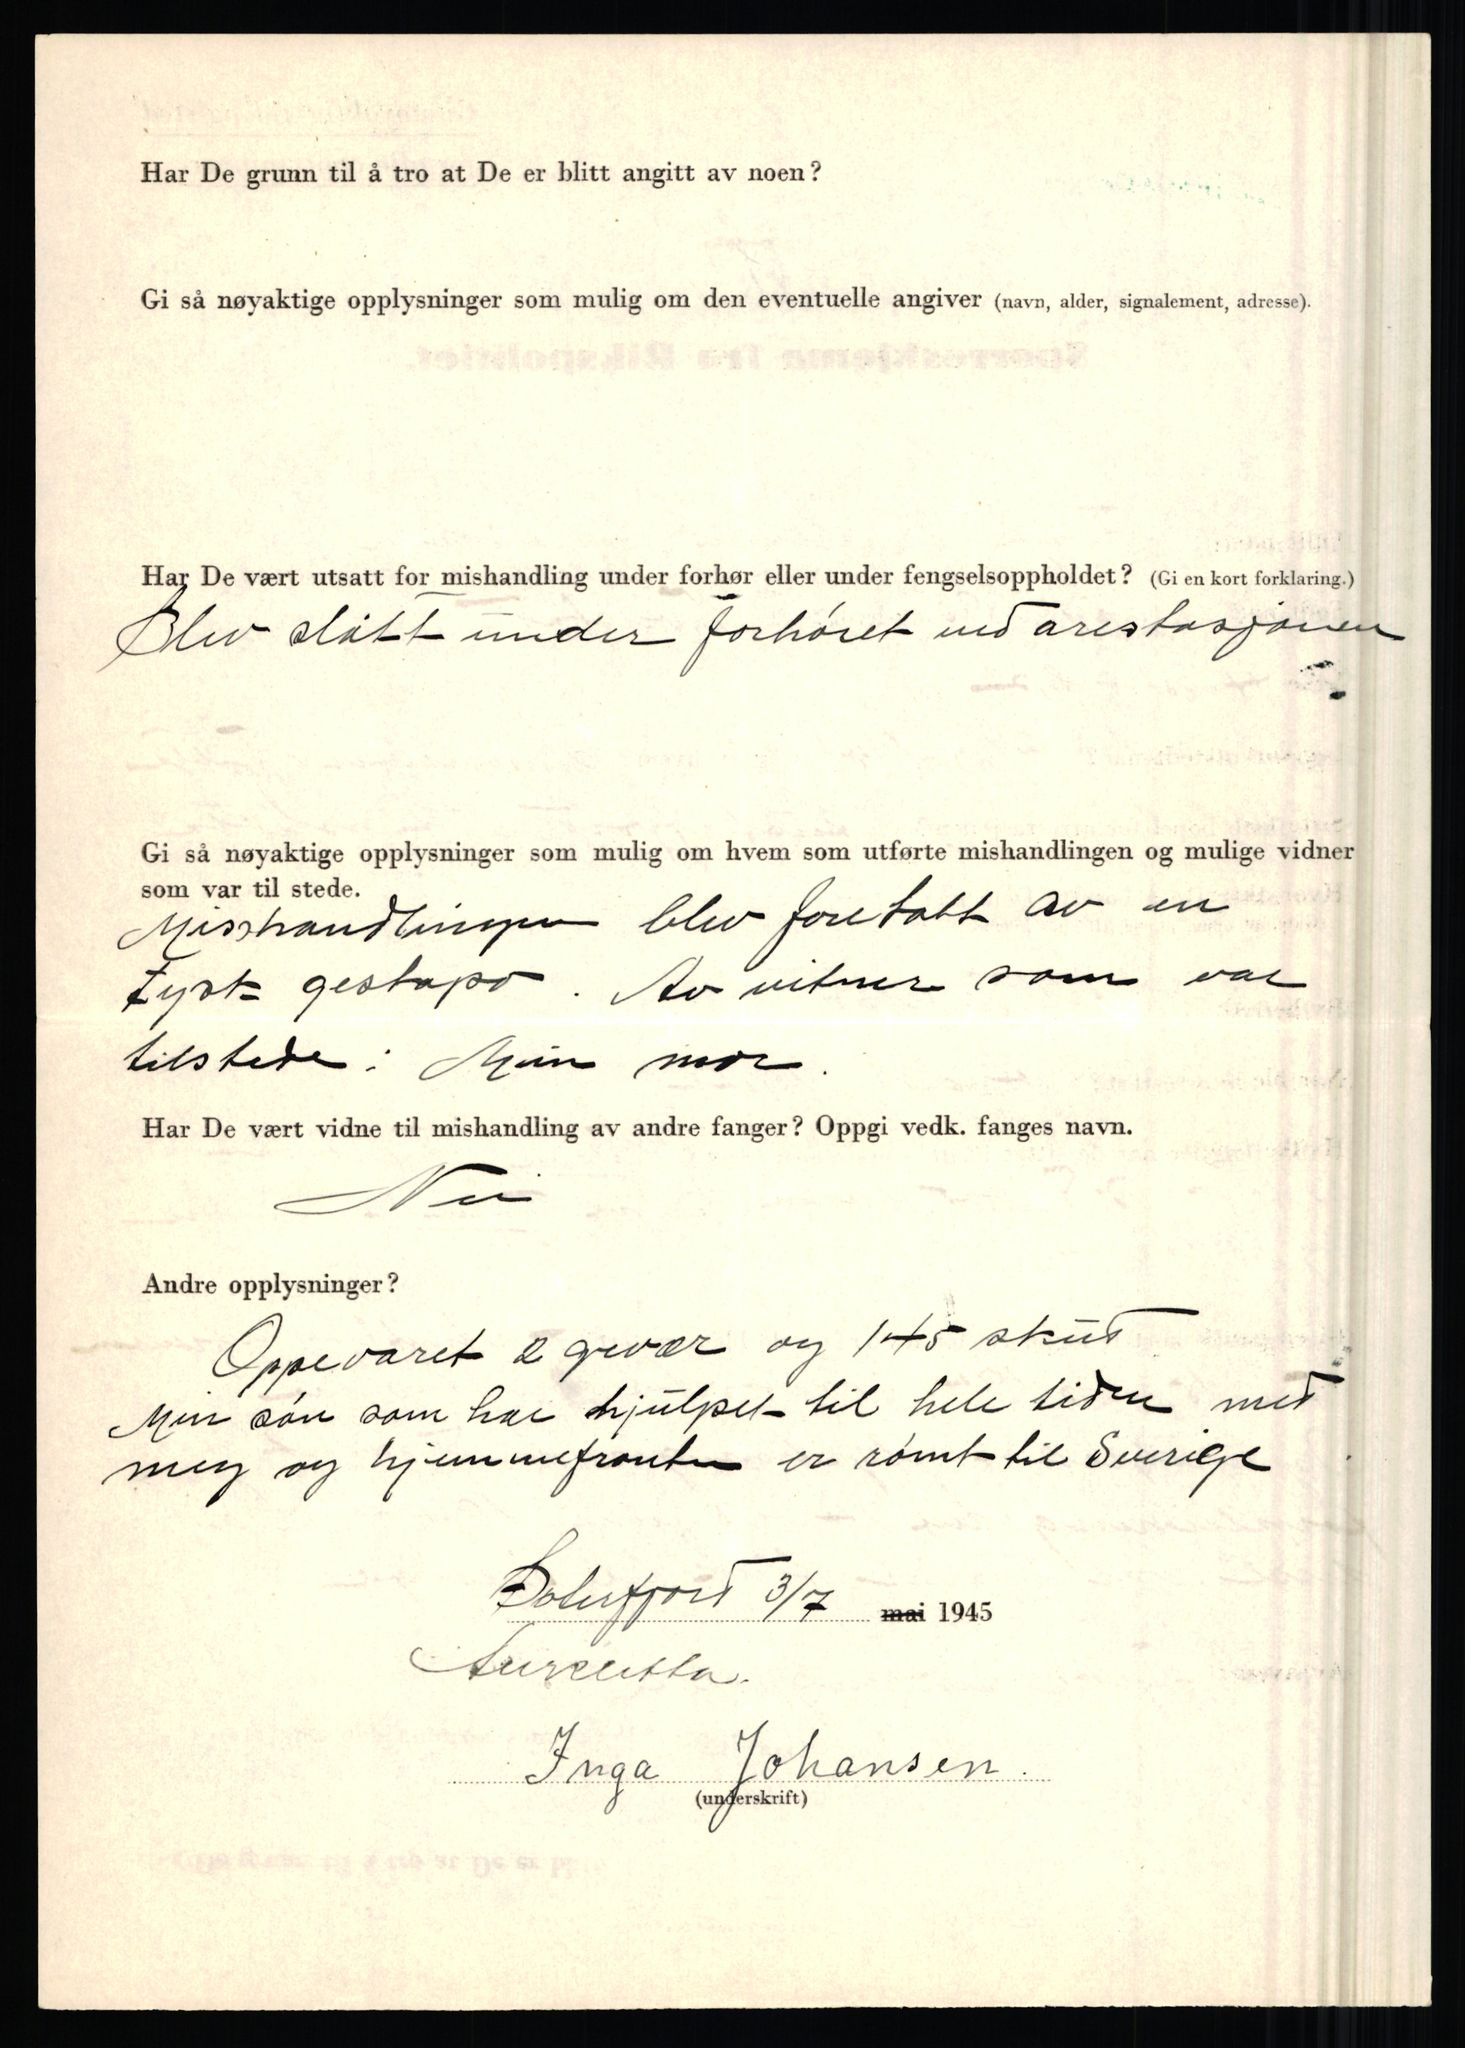 Har De grunn til å tro at De er blitt angitt av noen?
Gi så nøyaktige opplysninger som mulig om den eventuelle angiver (navn, alder, signalement, adresse).
Har De vært utsatt for mishandling under forhør eller under fengselsoppholdet? (Gi en kort forklaring.)
Blev slått under forhöret ved arestasjonen
Gi så nøyaktige opplysninger som mulig om hvem som utførte mishandlingen og mulige vidner
som var til stede.
Misshandlingen blev foretatt av en
Tysk gestapo. Av vitner som var
tilstede: Min mor.
Har De vært vidne til mishandling av andre fanger? Oppgi vedk. fanges navn.
Nei
Andre opplysninger?
Oppevaret 2 gevær og 145 skud
Min sön som har hjülpet til hele tiden med
meg og hjemmefronten er römt til Sverige
3/7 mai 1945
Inga Johansen.
(underskrift)